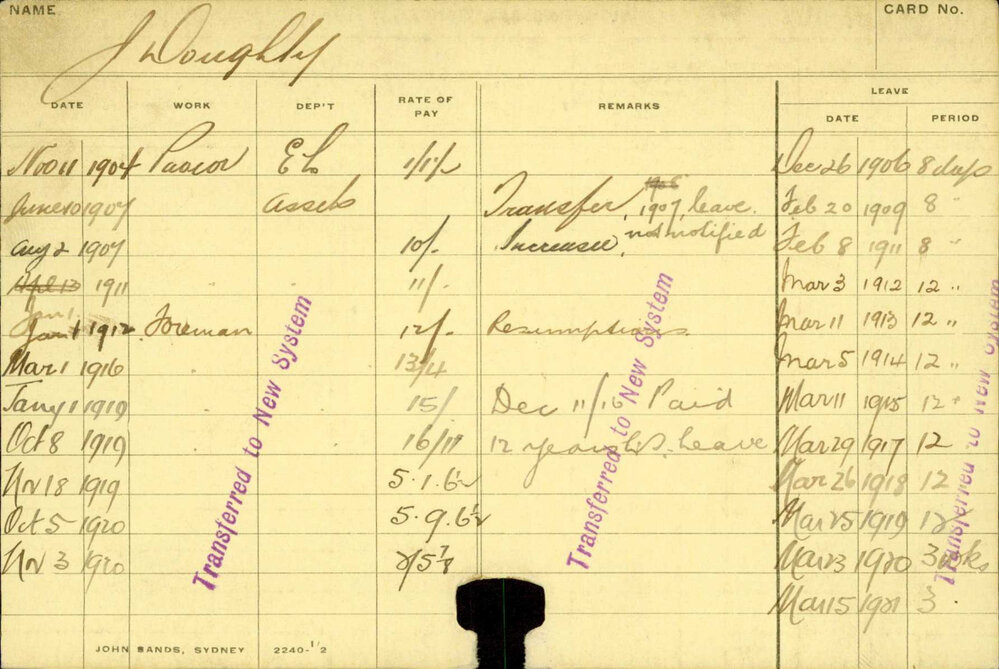 NAME
CARD No.
J Doughty
DATE WORK DEP'T RATE OF PAY REMARKS LEAVE
DATE PERIOD
Nov 11 1904 Pavior 1/1/- Dec 26 1906 8 days
June 10 1907 Assets Transfer, 1907, leave. Feb 20 1909 8 "
Aug 2 1907 10/- Increase, not notified Feb 8 1911 8 "
April 13 1911 11/- Mar 3 1912 12 "
Jan 1
Jan 1 1912 Foreman 12/- Resumptions. Mar 11 1913 12 "
Mar 1 1916 13/4 Mar 5 1914 12 "
Jany 1 1919 15/ Dec 11/16 Paid Mar 11 1915 12 "
Oct 8 1919 16/11 12 years L.S. Leave Mar 29 1917 12
Nov 18 1919 5.1.6½ Mar 26 1918 12
Oct 5 1920 5.9.6½ Mar 25 1919 12
Nov 3 1920 Mar 23 1920 3 wks
Mar 15 1921 3
Transferred to New System
Transferred to New System
Transferred to New System
JOHN SANDS, SYDNEY 2240-½